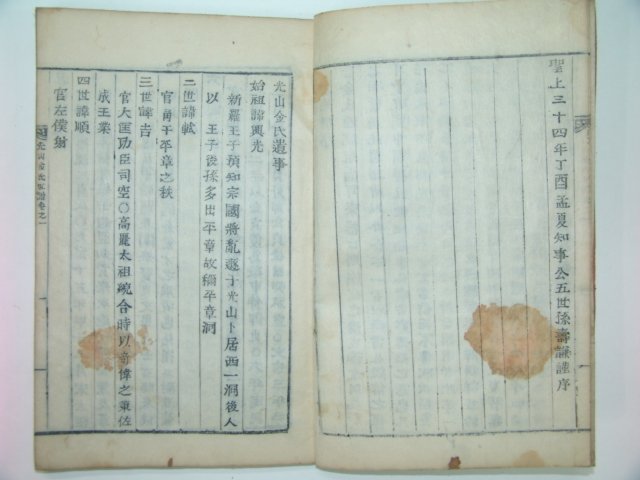 聖上三十四年丁酉孟夏知事公五世孫壽謙謹序
光山金氏遺事
始祖諱興光
新羅王子預知宗國將亂遯于光山卜居西一洞後人
以王子後孫多出平章故稱平章洞
二世諱軾
官角干平章之秩
三世諱吉
官大匡功臣司空〇高麗太祖統合時以奇偉之略佐
成王業
四世諱順
官左僕射
光山金氏族譜卷之一